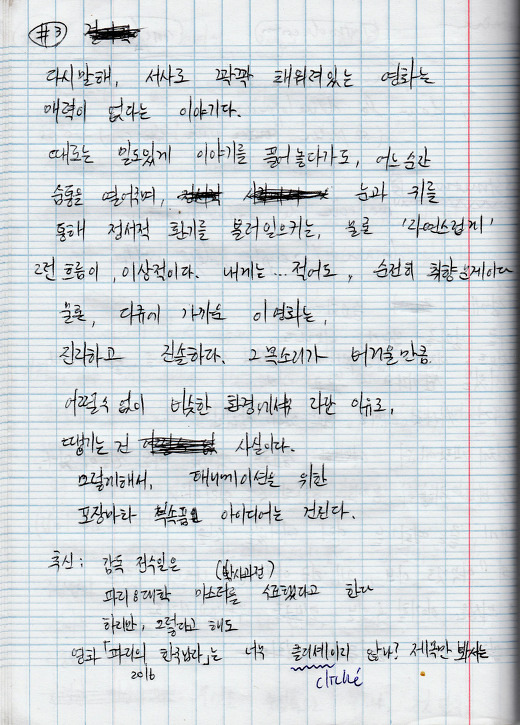 #3
다시말해, 서사로 꽉꽉 채워려있는 영화는
매력이 없다는 이야기다.
때로는 밀도있게 이야기를 풀어 놓다가도, 어느순간
숨통을 열어주며, 눈과 귀를
통해 정서적 환기를 불러일으키는, 물론 '자연스럽게'
그런 흐름이, 이상적이다. 내게는... 적어도, 순전히 취향문제이다
물론, 다큐에 가까운 이 영화는,
진지하고 진솔하다. 그 목소리가 버거울만큼.
어쩔수 없이 비슷한 환경에서 자란 이유로,
땡기는 건 사실이다.
그렇게해서, 애니메이션을 위한
포장마차 부속품 아이디어는 건진다.
추신: 감독 전수일은 (박사과정)
파리8대학 마스터를 수료했다고 한다
하지만, 그렇다고 해도
영화 「파리의 한국남자」는 너무 클리셰이지 않나? 제목만 봐서는
2016 cliché